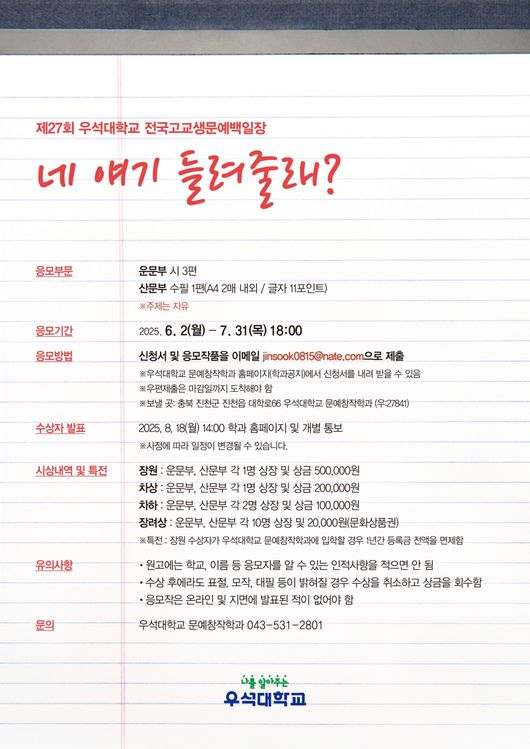 제27회 우석대학교 전국고교생문예백일장
네 얘기 들려줄래?
응모부문 운문부 시 3편
산문부 수필 1편(A4 2매 내외 / 글자 11포인트)
※주제는 자유
응모기간 2025. 6. 2(월) – 7. 31(목) 18:00
응모방법 신청서 및 응모작품을 이메일 jinsook0815@nate.com으로 제출
※우석대학교 문예창작학과 홈페이지(학과공지)에서 신청서를 내려 받을 수 있음
※우편제출은 마감일까지 도착해야 함
※보낼 곳: 충북 진천군 진천읍 대학로66 우석대학교 문예창작학과 (우:27841)
수상자 발표 2025. 8. 18(월) 14:00 학과 홈페이지 및 개별 통보
※사정에 따라 일정이 변경될 수 있습니다.
시상내역 및 특전 장원 : 운문부, 산문부 각 1명 상장 및 상금 500,000원
차상 : 운문부, 산문부 각 1명 상장 및 상금 200,000원
차하 : 운문부, 산문부 각 2명 상장 및 상금 100,000원
장려상 : 운문부, 산문부 각 10명 상장 및 20,000원(문화상품권)
※특전 : 장원 수상자가 우석대학교 문예창작학과에 입학할 경우 1년간 등록금 전액을 면제함
유의사항 • 원고에는 학교, 이름 등 응모자를 알 수 있는 인적사항을 적으면 안 됨
• 수상 후에라도 표절, 모작, 대필 등이 밝혀질 경우 수상을 취소하고 상금을 회수함
• 응모작은 온라인 및 지면에 발표된 적이 없어야 함
문의 우석대학교 문예창작학과 043-531-2801
나를 알아주는
우석대학교